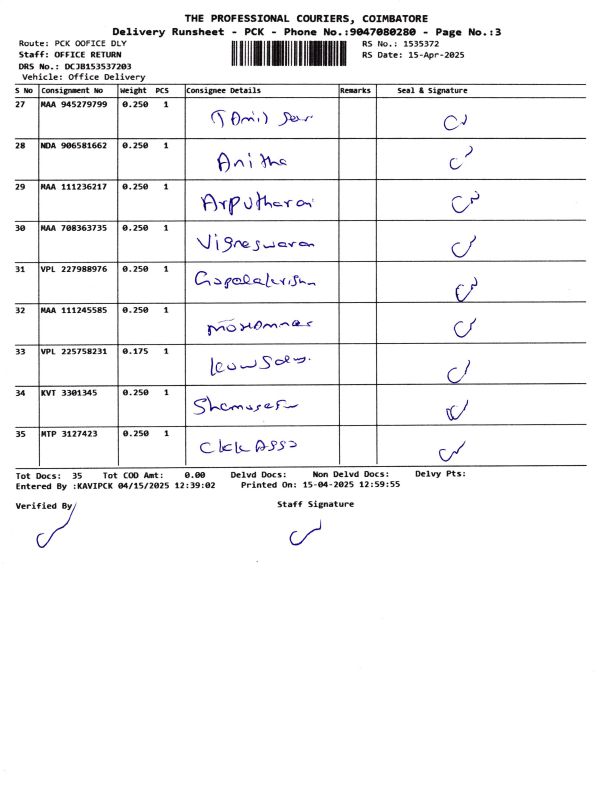 THE PROFESSIONAL COURIERS, COIMBATORE
Delivery Runsheet - PCK - Phone No.:9047080280 - Page No.:3
Route: PCK OOFICE DLY RS No.: 1535372
Staff: OFFICE RETURN RS Date: 15-Apr-2025
DRS No.: DCJB153537203
Vehicle: Office Delivery
S No Consignment No Weight PCS Consignee Details Remarks Seal & Signature
27 MAA 945279799 0.250 1
28 NDA 906581662 0.250 1 Anitha
29 MAA 111236217 0.250 1
30 MAA 708363735 0.250 1 Vigneswaran
31 VPL 227988976 0.250 1
32 MAA 111245585 0.250 1
33 VPL 225758231 0.175 1
34 KVT 3301345 0.250 1
35 MTP 3127423 0.250 1
Tot Docs: 35 Tot COD Amt: 0.00 Delvd Docs: Non Delvd Docs: Delvy Pts:
Entered By :KAVIPCK 04/15/2025 12:39:02 Printed On: 15-04-2025 12:59:55
Verified By Staff Signature